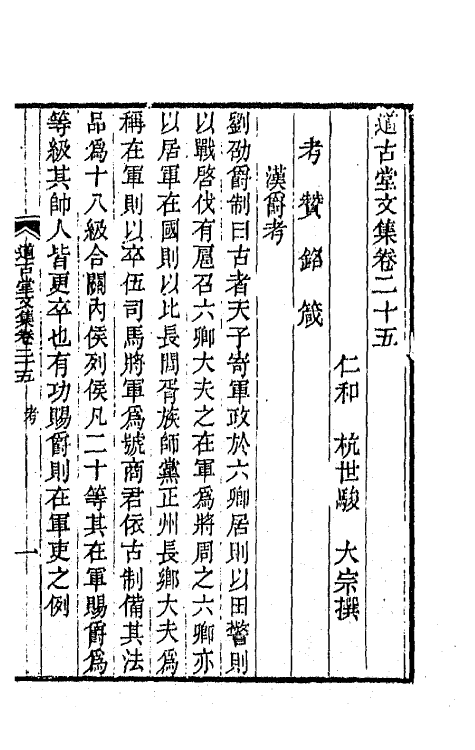 道古堂文集卷二十五
仁和　杭世駿　大宗撰
考贊銘箴
漢爵考
劉劭爵制曰古者天子寄軍政於六卿居則以田警則
以戰啓伐有扈召六卿大夫之在軍爲將周之六卿亦
以居軍在國則以比長閭胥族師黨正州長鄉大夫爲
稱在軍則以卒伍司馬將軍爲號商君依古制備其法
品爲十八級合關內侯列侯凡二十等其在軍賜爵爲
等級其帥人皆更卒也有功賜爵則在軍吏之例
道古堂文集卷二十五　考　一